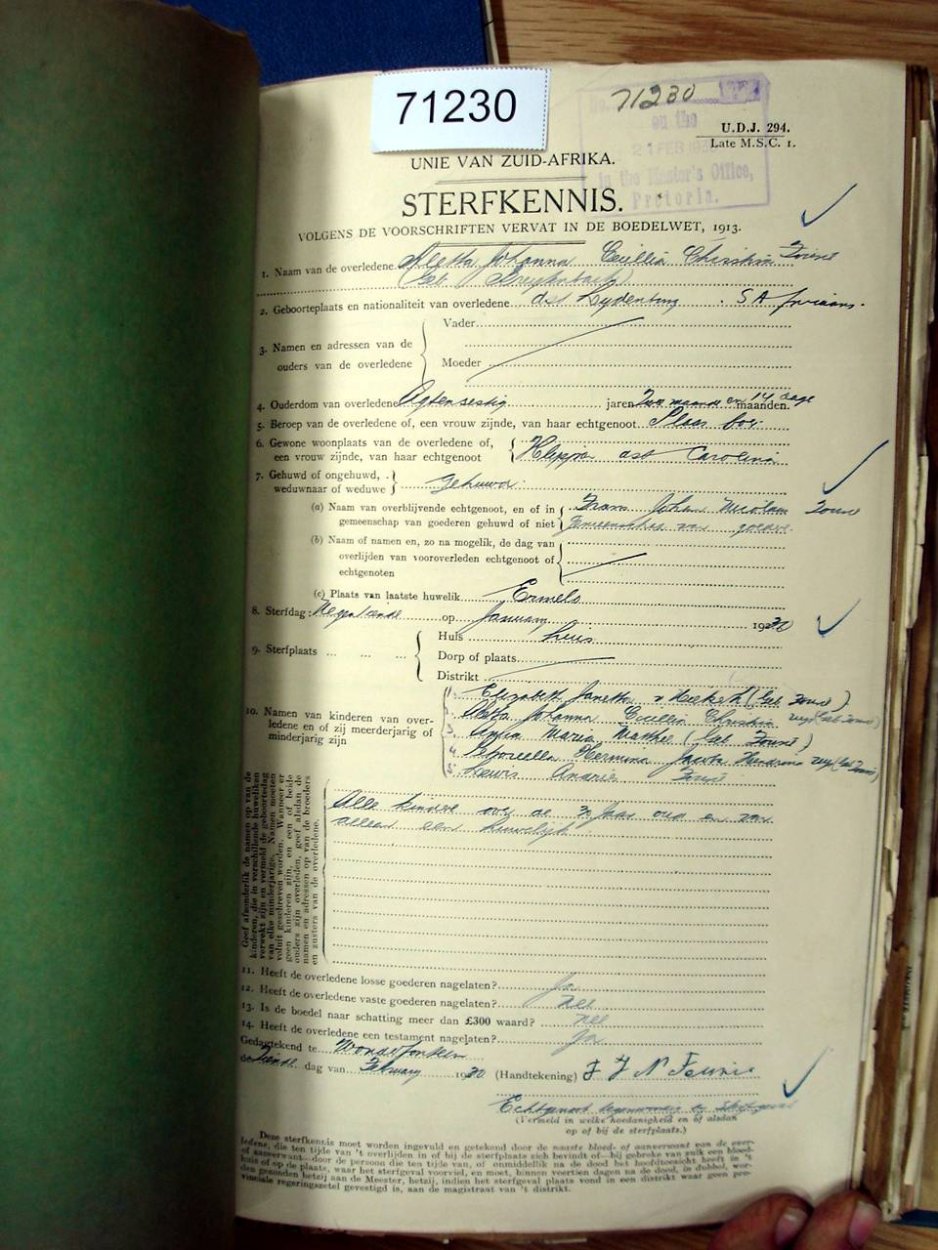 71230
71230
on the
21 FEB
in the Master's Office,
Pretoria.
U.D.J. 294.
Late M.S.C. 1.
UNIE VAN ZUID-AFRIKA.
STERFKENNIS.
VOLGENS DE VOORSCHRIFTEN VERVAT IN DE BOEDELWET, 1913.
1. Naam van de overledene Aletta Johanna Cecillia Chirstina Fourie
(Geb. Breytenbach)
2. Geboorteplaats en nationaliteit van overledene dst Lydenburg . S A
3. Namen en adressen van de
ouders van de overledene
Vader
Moeder
4. Ouderdom van overledene Agtensestig jaren Twe maande en 14 dage maanden.
5. Beroep van de overledene of, een vrouw zijnde, van haar echtgenoot Plaas boer
6. Gewone woonplaats van de overledene of,
een vrouw zijnde, van haar echtgenoot
dst Carolina
7. Gehuwd of ongehuwd,
weduwnaar of weduwe
Gehuwd
(a) Naam van overblijvende echtgenoot, en of in
gemeenschap van goederen gehuwd of niet
Frans Johan Nicolaas Fourie
gemeenskap van goedere
(b) Naam of namen en, zo na mogelik, de dag van
overlijden van vooroverleden echtgenoot of
echtgenoten
(c) Plaats van laatste huwelik Ermelo
8. Sterfdag: Negentiende op Januarie 1930
9. Sterfplaats ... ... ...
Huis huis
Dorp of plaats
Distrikt
10. Namen van kinderen van over-
ledene en of zij meerderjarig of
minderjarig zijn
1. Elizabeth Janetta v Heerden (Geb Fourie)
2. Aletta Johanna Cecillia Christina (Geb Fourie)
3. Maria (Geb Fourie)
4. Petronella Hermina Jacoba Hendrina (Geb Fourie)
5. Louis Andries Fourie
Geef afzonderlik de namen op van de
kinderen, die in verschillende huweliken
verwekt zijn en vermeld de geboortedag
van elke minderjarige. Namen moeten
voluit geschreven worden. Wanneer er
geen kinderen zijn, en een of beide
ouders zijn overleden, geef alsdan de
namen en adressen op van de broeders
en zusters van de overledene.
Alle kindere over de 30 Jaar oud en van
alleen een huwelijk
11. Heeft de overledene losse goederen nagelaten? Ja
12. Heeft de overledene vaste goederen nagelaten? nee
13. Is de boedel naar schatting meer dan £300 waard? nee
14. Heeft de overledene een testament nagelaten? Ja
Gedagtekend te Wonderfontein
de Tiende dag van February 1930 (Handtekening) F J N Fourie
Echtgenoot tegenwoordig bij sterfgeval
(Vermeld in welke hoedanigheid en of alsdan
op of bij de sterfplaats.)
Deze sterfkennis moet worden ingevuld en getekend door de naaste bloed- of aanverwant van de over-
ledene, die ten tijde van 't overlijden in of bij de sterfplaats zich bevindt of—bij gebreke van zulk een bloed-
of aanverwant—door de persoon die ten tijde van, of onmiddellik na de dood het hoofdtoezicht heeft in 't
huis of op de plaats, waar het sterfgeval voorviel, en moet, binnen veertien dagen na de dood, in dubbel, wor-
den gezonden hetzij aan de Meester, hetzij, indien het sterfgeval plaats vond in een distrikt waar geen pro-
vinciale regeringszetel gevestigd is, aan de magistraat van 't distrikt.